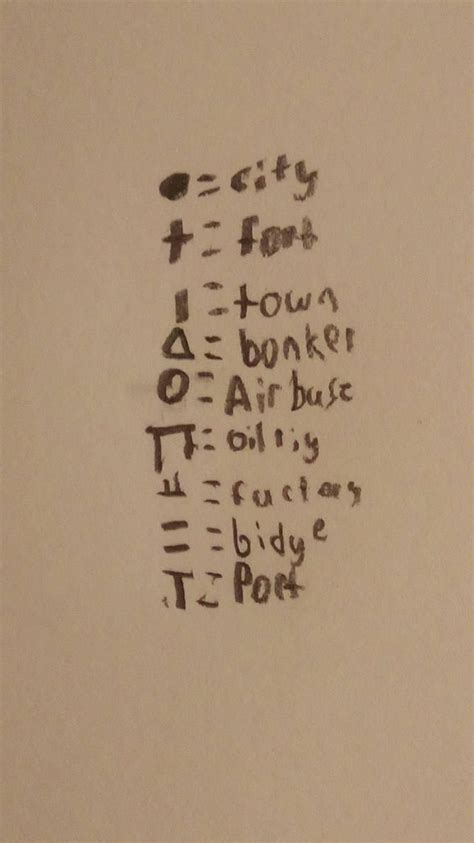 ● = city
+ = fort
| = town
△ = bonker
○ = Airbase
∏ = oilrig
⫫ = factory
= = bidge
T = Port